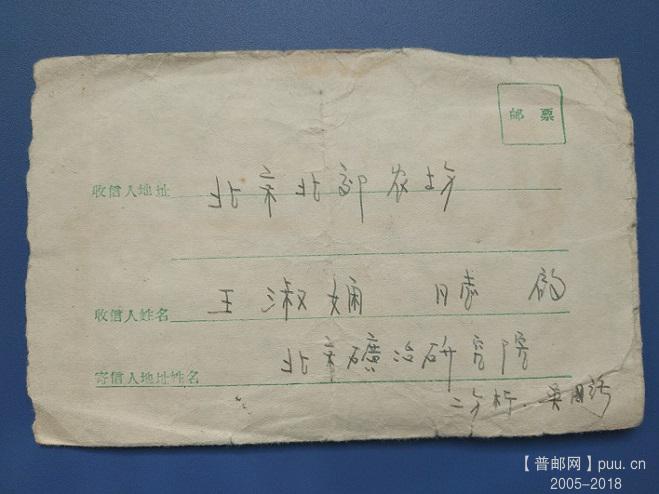 邮票
收信人地址 北京北郊农场
收信人姓名 王淑娴 同志 启
北京矿冶研究院
寄信人地址姓名
二分析.吴
【普邮网】puu.cn
2005-2018